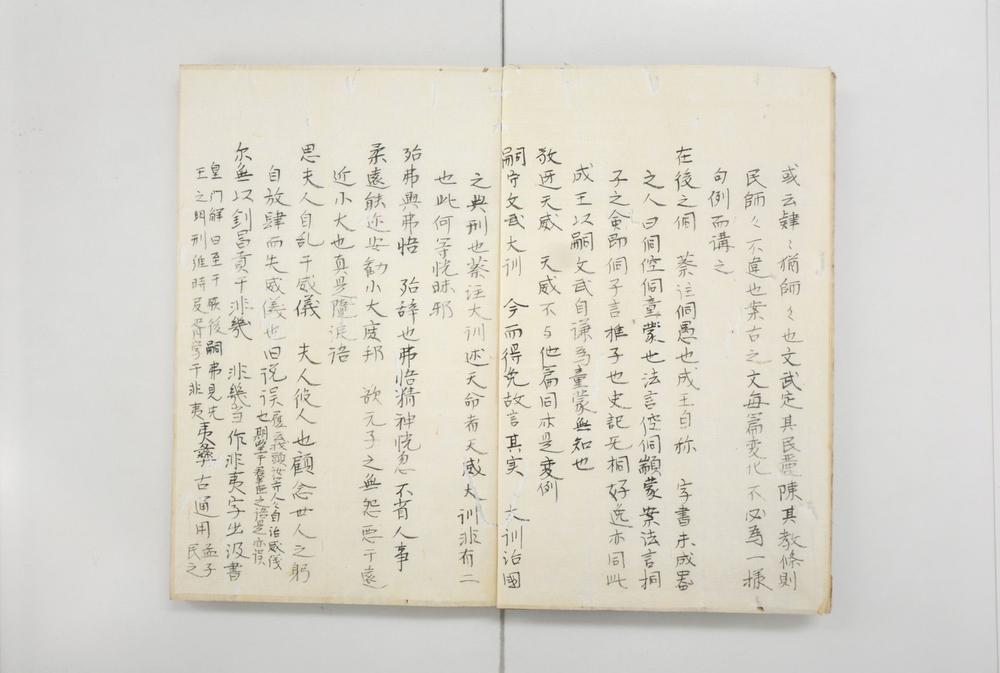 或云肄〻猶師々也文武定其民麗陳其教條則
民師々不違也案古之文每篇変化不必為一様
句例而講之
在後之侗　蔡注侗愚也成王自称　字書未成器
之人曰侗倥侗童蒙也法言倥侗顓蒙案法言桐
子之命即侗子言稚子也史記无桐好逸亦同此
成王以嗣文武自谦為童蒙無知也
敬迓天威　天威不与他篇同亦是変例
嗣守文武大訓　今而得免故言其実　大訓治國
之典刑也蔡注大訓述天命者天威大訓非有二
也此何等恍昧邪
殆弗興弗悟　殆辞也弗悟精神恍忽不省人事
柔遠能迩安勧小大庶邦　欲元子之無怨悪于遠
近小大也真是墮涙語
思夫人自乱于威儀　夫人彼人也顧念世人之躬
自放肆而失威儀也旧説误也
尔無以釗冒貢于非幾　非幾当作非夷字出汲書
皇门解曰至于厥後嗣弗見先
王之明刑維時及胥学于非夷夷彝古通用孟子
民之